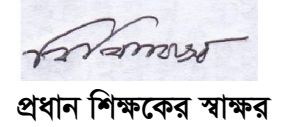 প্রধান শিক্ষকের স্বাক্ষর